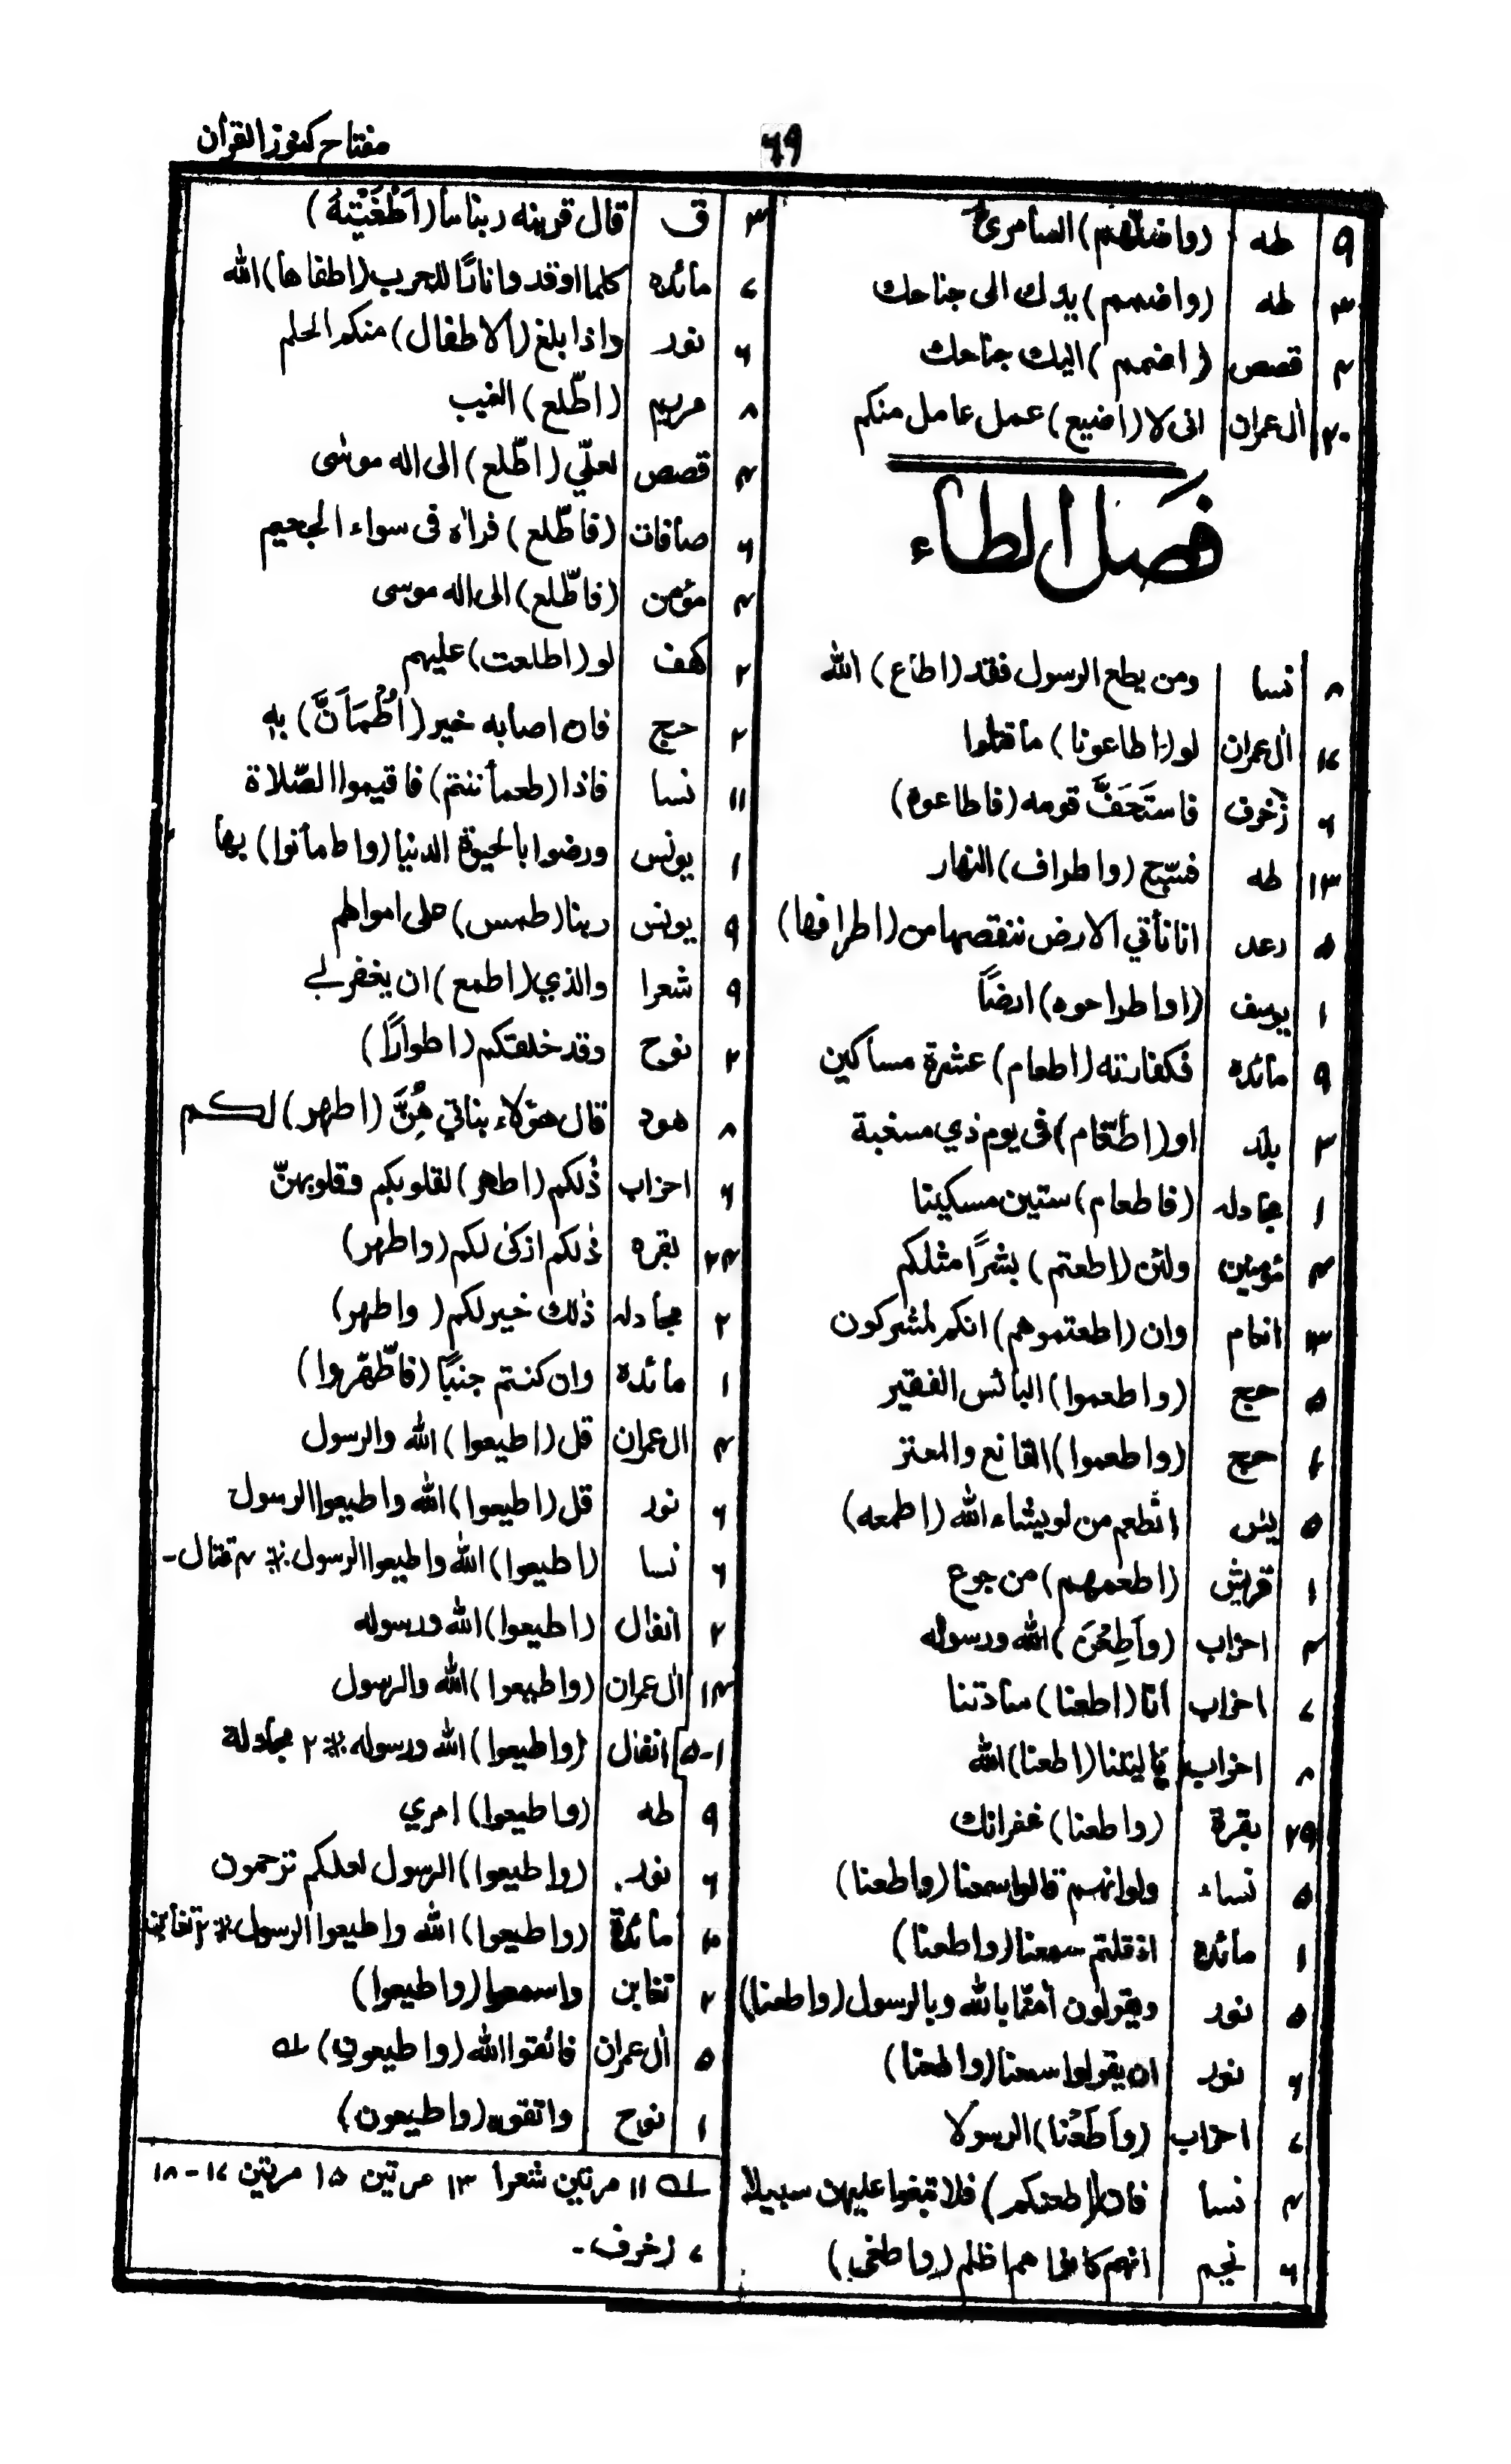 مفتاح كنوز القرأن
٦٩
٩ طه (واضلّهم) السأمرىّ
٣ طه (واضمم) يدك الى جناحك
٤ قصص (اضمم) اليك جناحك
٢٠ اٰل عمران انى لا (اضيع) عمل عامل منكم
فصل الطاء
٨ نسا ومن يطع الرسول فقد (اطاع) الله
١٧ اٰل عمران لو (اطاعونا) مأقتلوا
٦ زخرف فاستَخَفَّ قومه (فاطاعوه)
١٣ طه فسبّح (واطراف) النهار
٥ رعد انا نأتي الارض ننقصها من (اطرافها)
١ يوسف (اواطراحوه) ارضًا
٩ مأئده فكفارته (اطعام) عشرة مسأكين
٣ بلد او (اطعام) فى يوم ذي مسغبة
١ مجأدله (فاطعام) ستين مسكينا
٣ مؤمنين ولئن (اطعتم) بشرًا مثلكم
١٣ انعام وان (اطعتموهم) انكم لمشركون
٥ حج (واطعموا) البأئس الفقير
٤ حج (واطعموا) القانع والمعتز
٥ يٰس انُطعم من لو يشاء الله (اطمعه)
١ قريش (اطعمهم) من جوع
٤ احزاب (وَاَطِعْنَ) الله ورسوله
٧ احزاب انّا (اطعنا) سأدتنا
٨ احزاب يا ليتنا (اطعنا) الله
٢٩ بقرة (واطعنا) غفرانك
٥ نساء ولو انهم قالوا سمعنا (واطعنا)
١ مأئده اذ قلتم سمعنا (واطعنا)
٥ نور ويقولون اٰمنّا بالله وبالرسول (واطعنا)
٦ نور ان يقولوا سمعنا (واطعنا)
٧ احزاب (وَاَطَعْنَا) الرسولا
٤ نسا فان (اطعنكم) فلا تبغوا عليهن سبيلا
٦ نجم انهم كانوا هم اظلم (واطغى)
٣ ق قال قرينه ربنا مأ (اَطْغَيْتهُ)
٧ مأئده كلما اوقدوا نارًا للحرب (اطفاهأ) الله
٦ نور واذا بلغ (الاطفال) منكم الحلم
٨ مريم (اطّلع) الغيب
٤ قصص لعلّي (اطّلع) الى اله موسٰى
٦ صأفات (فاطّلع) فراٰه فى سواء الجحيم
٤ مؤمن (فاطّلع) الى اله موسى
٢ كهف لو (اطلعت) عليهم
٢ حج فان اصأبه خير (اطْمَاَنَّ) به
١١ نسا فاذا (طعمأننتم) فاقيموا الصّلاة
١ يونس ورضوا بألحيوة الدنيا (واطمأنوا) بهأ
٩ يونس ربنا (طمس) على اموالهم
٩ شعرا والذي (اطمع) ان يغفر لي
٢ نوح وقد خلقتكم (اطوارًا)
٨ هود قال هؤلاء بناتي هُنَّ (اطهر) لكم
٦ احزاب ذٰلكم (اطهر) لقلوبكم وقلوبهنّ
٢٤ بقره ذٰلكم ازكٰى لكم (واطهر)
٢ مجأدله ذٰلك خير لكم (واطهر)
١ مأئده وان كنتم جنبًا (فاطّهّروا)
٤ اٰل عمران قل (اطيعوا) الله والرسول
٦ نور قل (اطيعوا) الله واطيعوا الرسول
٦ نسا (اطيعوا) الله واطيعوا الرسول ※ ٤ قتال-
٢ انفال (اطيعوا) الله ورسوله
١٤ اٰل عمران (واطيعوا) الله والرسول
١-٥ انفال (واطيعوا) الله ورسوله ※ ٢ مجأدلة
٩ طه (واطيعوا) امري
٦ نور (واطيعوا) الرسول لعلكم ترحمون
مأئدة (واطيعوا) الله واطيعوا الرسول ※ ٢ تغأبن
٢ تغابن واسمعوا (واطيعوا)
٥ اٰل عمران فاتقوا الله (واطيعون) له
١ نوح واتقوه (واطيعون)
له ١١ مرتين شعرأ ١٣ مرتين ١٥ مرتين ١٧-١٨
٧ زخرف-